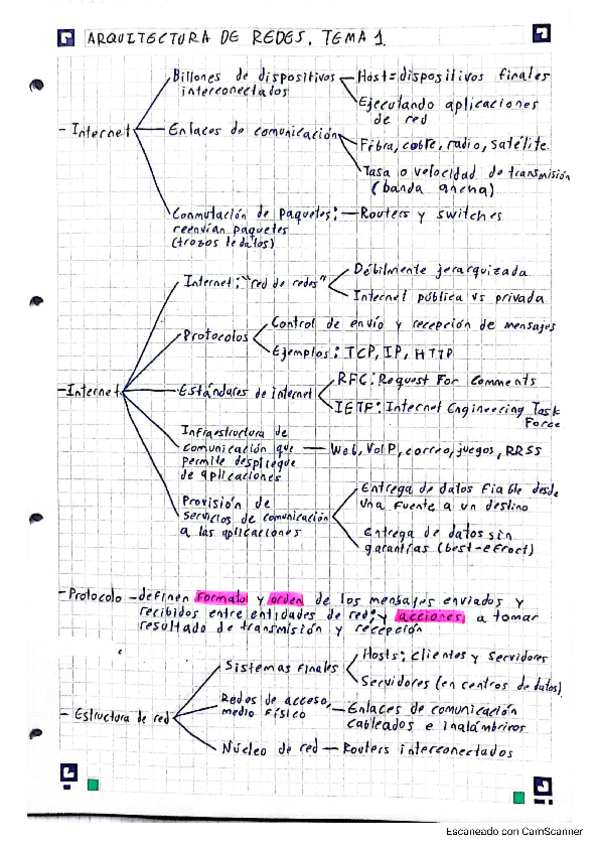 ARQUITECTURA DE REDES. TEMA 1
- Internet
Billones de dispositivos
interconectados
Host = dispositivos finales
Ejecutando aplicaciones
de red
Enlaces de comunicación
Fibra, cobre, radio, satélite.
Tasa o velocidad de transmisión
(banda ancha)
Conmutación de paquetes:
reenvían paquetes
(trozos de datos)
Routers y switches
- Internet
Internet: "red de redes"
Débilmente jerarquizada
Internet pública vs privada
Protocolos
Control de envío y recepción de mensajes
Ejemplos: TCP, IP, HTTP
Estándares de internet
RFC: Request For Comments
IETF: Internet Engineering Task
Force
Infraestructura de
comunicación que
permite despliegue
de aplicaciones
Web, VoIP, correo, juegos, RRSS
Provisión de
servicios de comunicación
a las aplicaciones
Entrega de datos fiable desde
una fuente a un destino
Entrega de datos sin
garantías (best-efroct)
- Protocolo - definen formato y orden de los mensajes enviados y
recibidos entre entidades de red; y acciones a tomar
resultado de transmisión y recepción
- Estructura de red
Sistemas finales
Hosts: clientes y servidores
Servidores (en centros de datos)
Redes de acceso,
medio físico
Enlaces de comunicación
cableados e inalámbricos
Núcleo de red - Routers interconectados
Escaneado con CamScanner